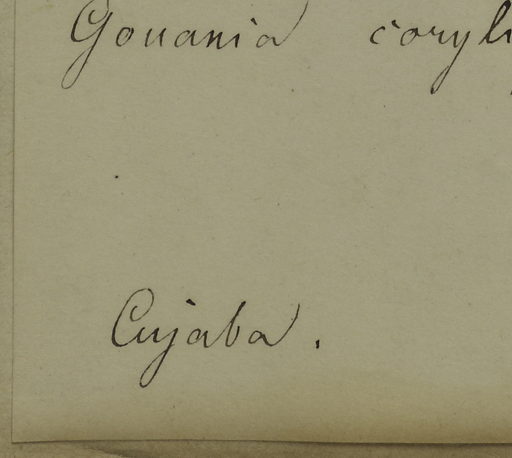 Gouania coryli
Cujaba.